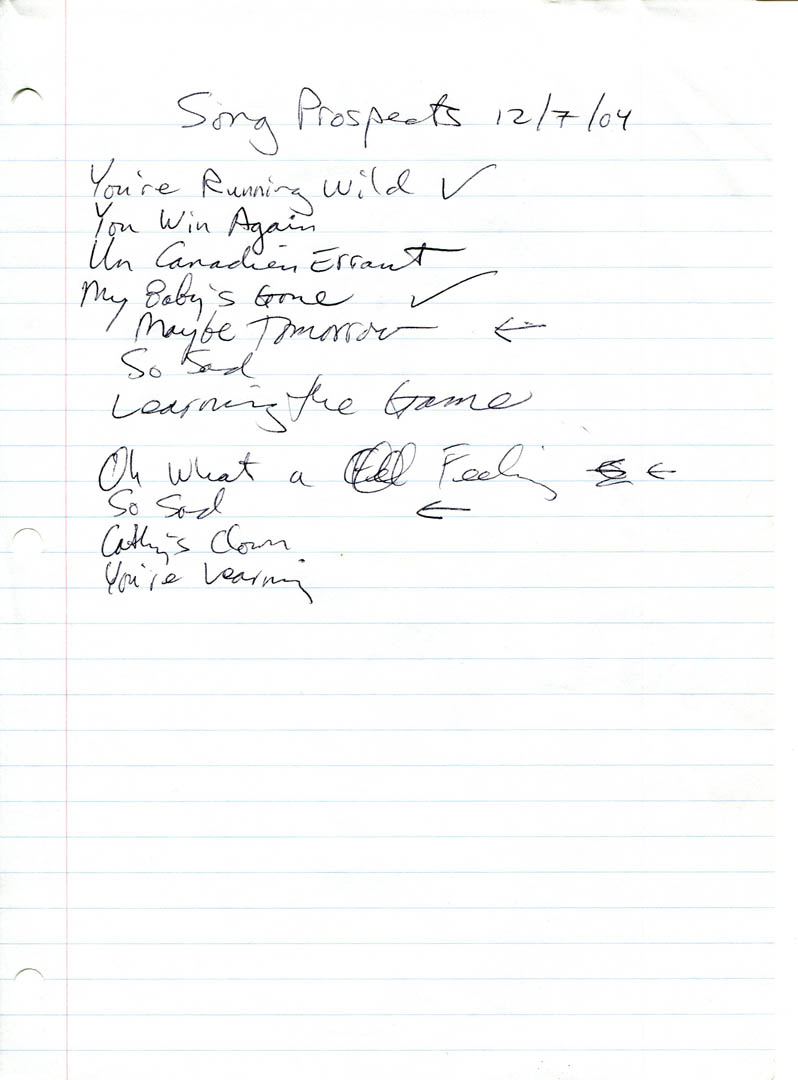 Song Prospects 12/7/04
You're Running Wild ✓
You Win Again
Un Canadien Errant
My Baby's Gone ✓
Maybe Tomorrow ←
So Sad
Learning the Game
Oh What a Feeling ←
So Sad ←
Cathy's Clown
You're Learning